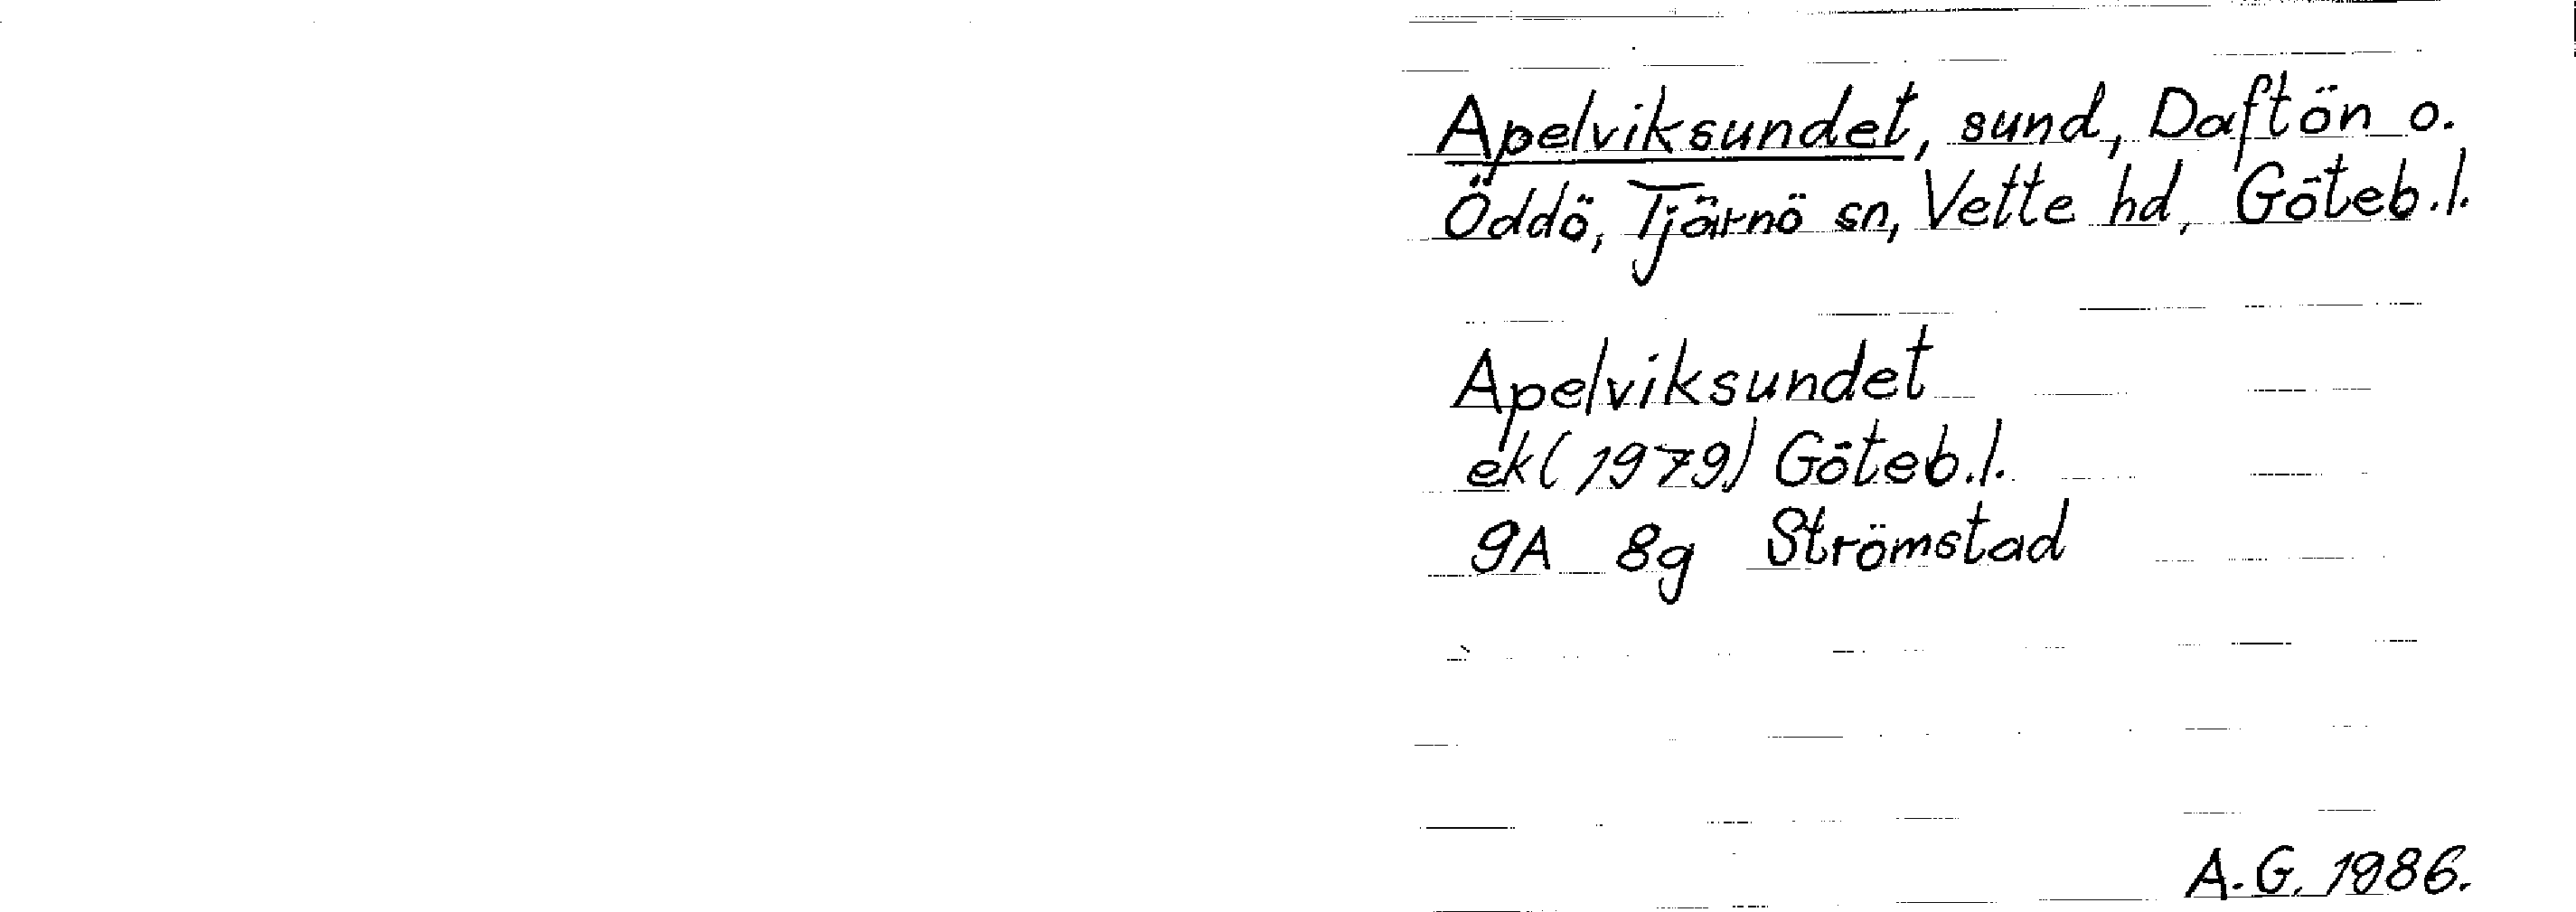 Apelviksundet, sund, Daftön o.
Öddö, Tjärnö sn, Vette hd, Göteb.l.
Apelviksundet
ek (1979) Göteb.l.
9A 8g Strömstad
A.G. 1986.